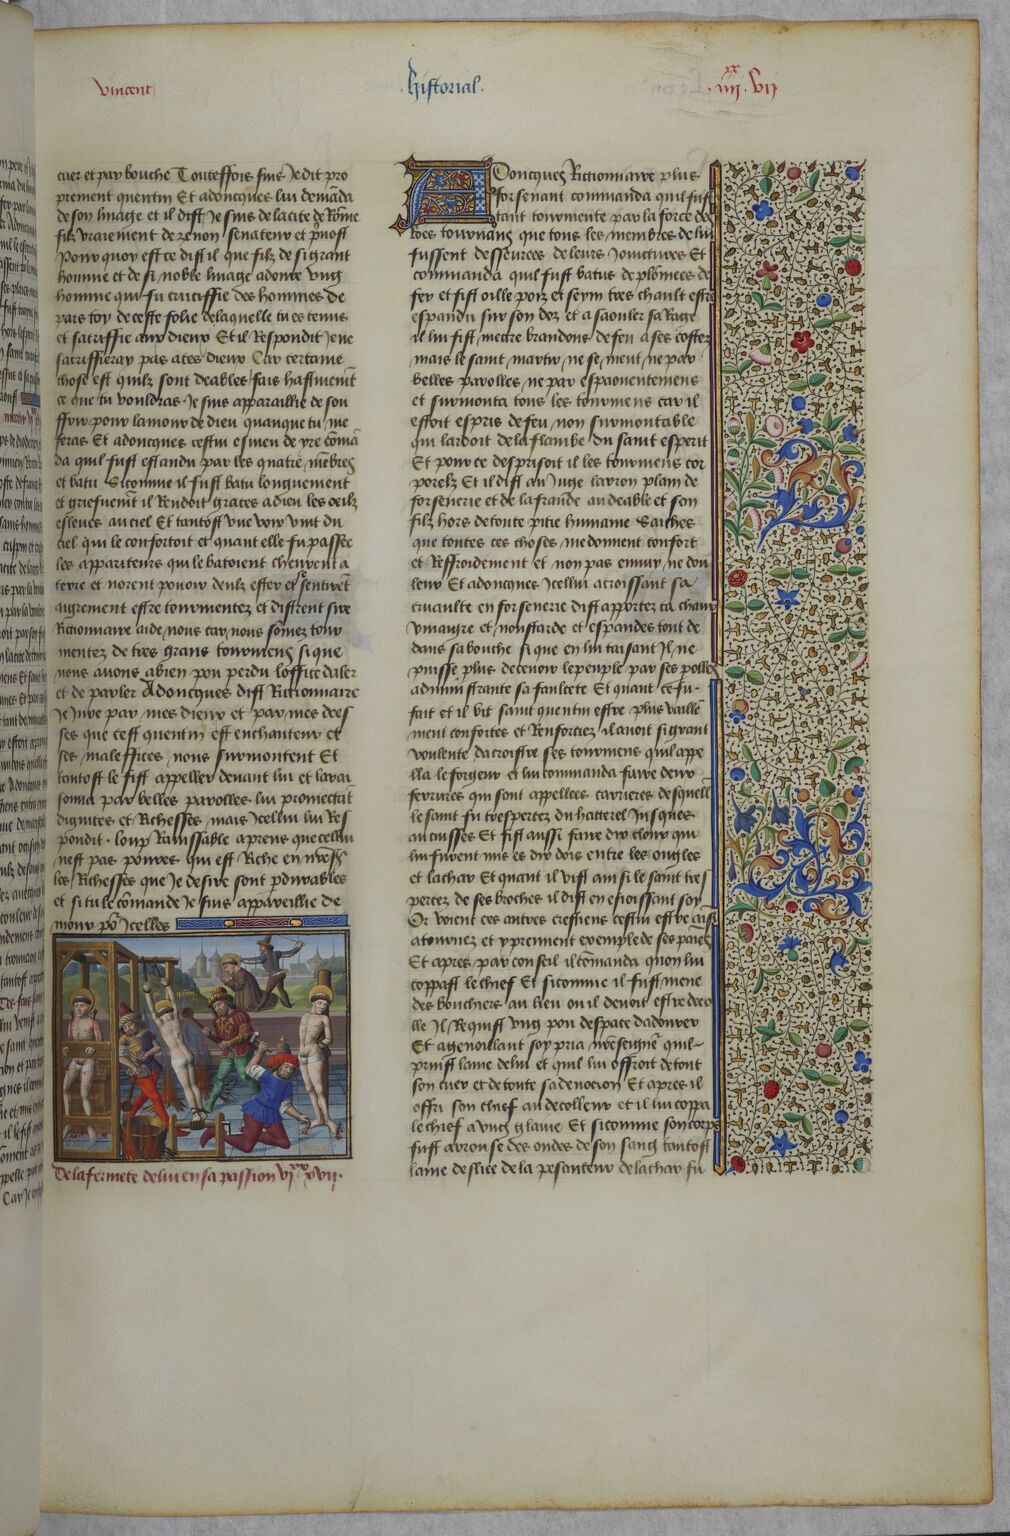 Vincent
historial.
.iiii.xx vii
cuer et par bouche Touteffois suis Je dit pro
prement quentin Et adoncques lui demāda
de son linage et il dist Je suis de la cite de Rōme
filz vraiement de zenon senateur et
Pour quoy est ce dist il que filz de si grant
homme et de si noble linage adoure vng
homme qui fu crucifie des hommes de
pars toy de ceste folie de laquelle tu es tenus
et sacriffie aux dieux Et il Respondit Je ne
sacriffieray pas a tes dieux Car certaine
chose est quilz sont deables fais hastiuemēt
ce que tu vouldras Je suis apparaillie de sou
ffrir pour lamour de dieu quanque tu me
feras Et adoncques cestui esmeu de yre cōmā
da quil fust estandu par les quatre mēbres
et batu Sicomme il fust batu longuement
et griefuemēt il Rendoit graces a dieu les oeilz
esleues au ciel Et tantost vne voix vint du
ciel qui le confortoit et quant elle fu passee
les appariteurs qui le batoient cheurent a
terre et norent pouoir deulz effer et sentirēt
aigrement estre tourmentez et distrent sire
Rictionnaire aide nous car nous sōmes tour
mentez de tres grans tourmens si que
nous auons a bien pou perdu loffice daler
et de parler Adoncques dist Rictionnaire
Je Jure par mes dieux et par mes dees
ses que cest quentin est enchanteur et
ses malefices nous surmontent Et
tantost le fist appeller deuant lui et larai
sonna par belles parolles lui promectāt
dignites et Richesses mais Icellui lui Res
pondit . loup Rauissable aprens que cellui
nest pas poures qui est Riche en
les Richesses que Je desire sont pdurables
et si tu le cōmande Je suis appareillie de
mourir Icelles
De la fermete de lui en sa passion xvii.
Adoncques Rictionnaire plus
forsenant commanda quil fust
tant tourmente par la force des
Roes tournans que tous les membres de lui
fussent desseurees de leurs Joinctures Et
commanda quil fust batus de plōmees de
fer et fist oille poiz et seym tres chault estre
espandu sur son doz et a saouler sa Rage
il lui fist mectre brandons de feu a ses costez
mais le saint martir ne se ment ne par
belles parolles ne par espaouentemens
et surmonta tous les tourmens car il
estoit espris de feu non surmontable
qui lardoit de la flambe du saint esperit
Et pour ce desprisoit il les tourmens cor
porelz Et il dist au Juge larron plain de
forsenerie et de la fraude au deable et son
filz hors de toute pitie humaine Saiches
que toutes ces choses me donnent confort
et Reffroidement et non pas ennuy ne dou
leur Et adoncques Icellui acroissant sa
cruaulte en forsenerie dist apportez ca chaux
vinaigre et moustarde et espandes tout de
dans sa bouche si que en lui taisant Il ne
puisse plus deceuoir le peuple par ses polles
adminiistrante sa faulcete Et quant ce fu
fait et il vit saint quentin estre plus vaillē
ment confortez et Renforciez il auoit si grant
voulente dacroistre ses tourmens quil appe
lla le forgeur et lui commanda faire deux
ferrures qui sont appellees carrieres desquell
le saint fu trespertez du hatterel Jusques
au cuisses Et fist aussi faire dix cloux qui
lui furent mis es dix dois entre les ongles
et la char Et quant il vist ainsi le saint tres
pertez de ses broches il dist en esioissant soy
Or voient ces autres crestiens cestui estre ainsi
atournez et y prennent exemple de ses paines
Et apres par conseil il cōmanda quon lui
coppast le chief Et sicomme il fust mene
des bouchiers au lieu ou il deuoit estre deco
lle Il Requist vng pou despace daourer
Et agenoullant soy pria quil
prinst lame de lui et quil lui offroit de tout
son cuer et de toute sa deuocion Et apres il
offri son chief au decolleur et il lui coppa
le chief a vng glaiue Et sicomme son corps
fust arrouse des ondes de son sang tantost
lame desliee de la pesanteur de la char fu